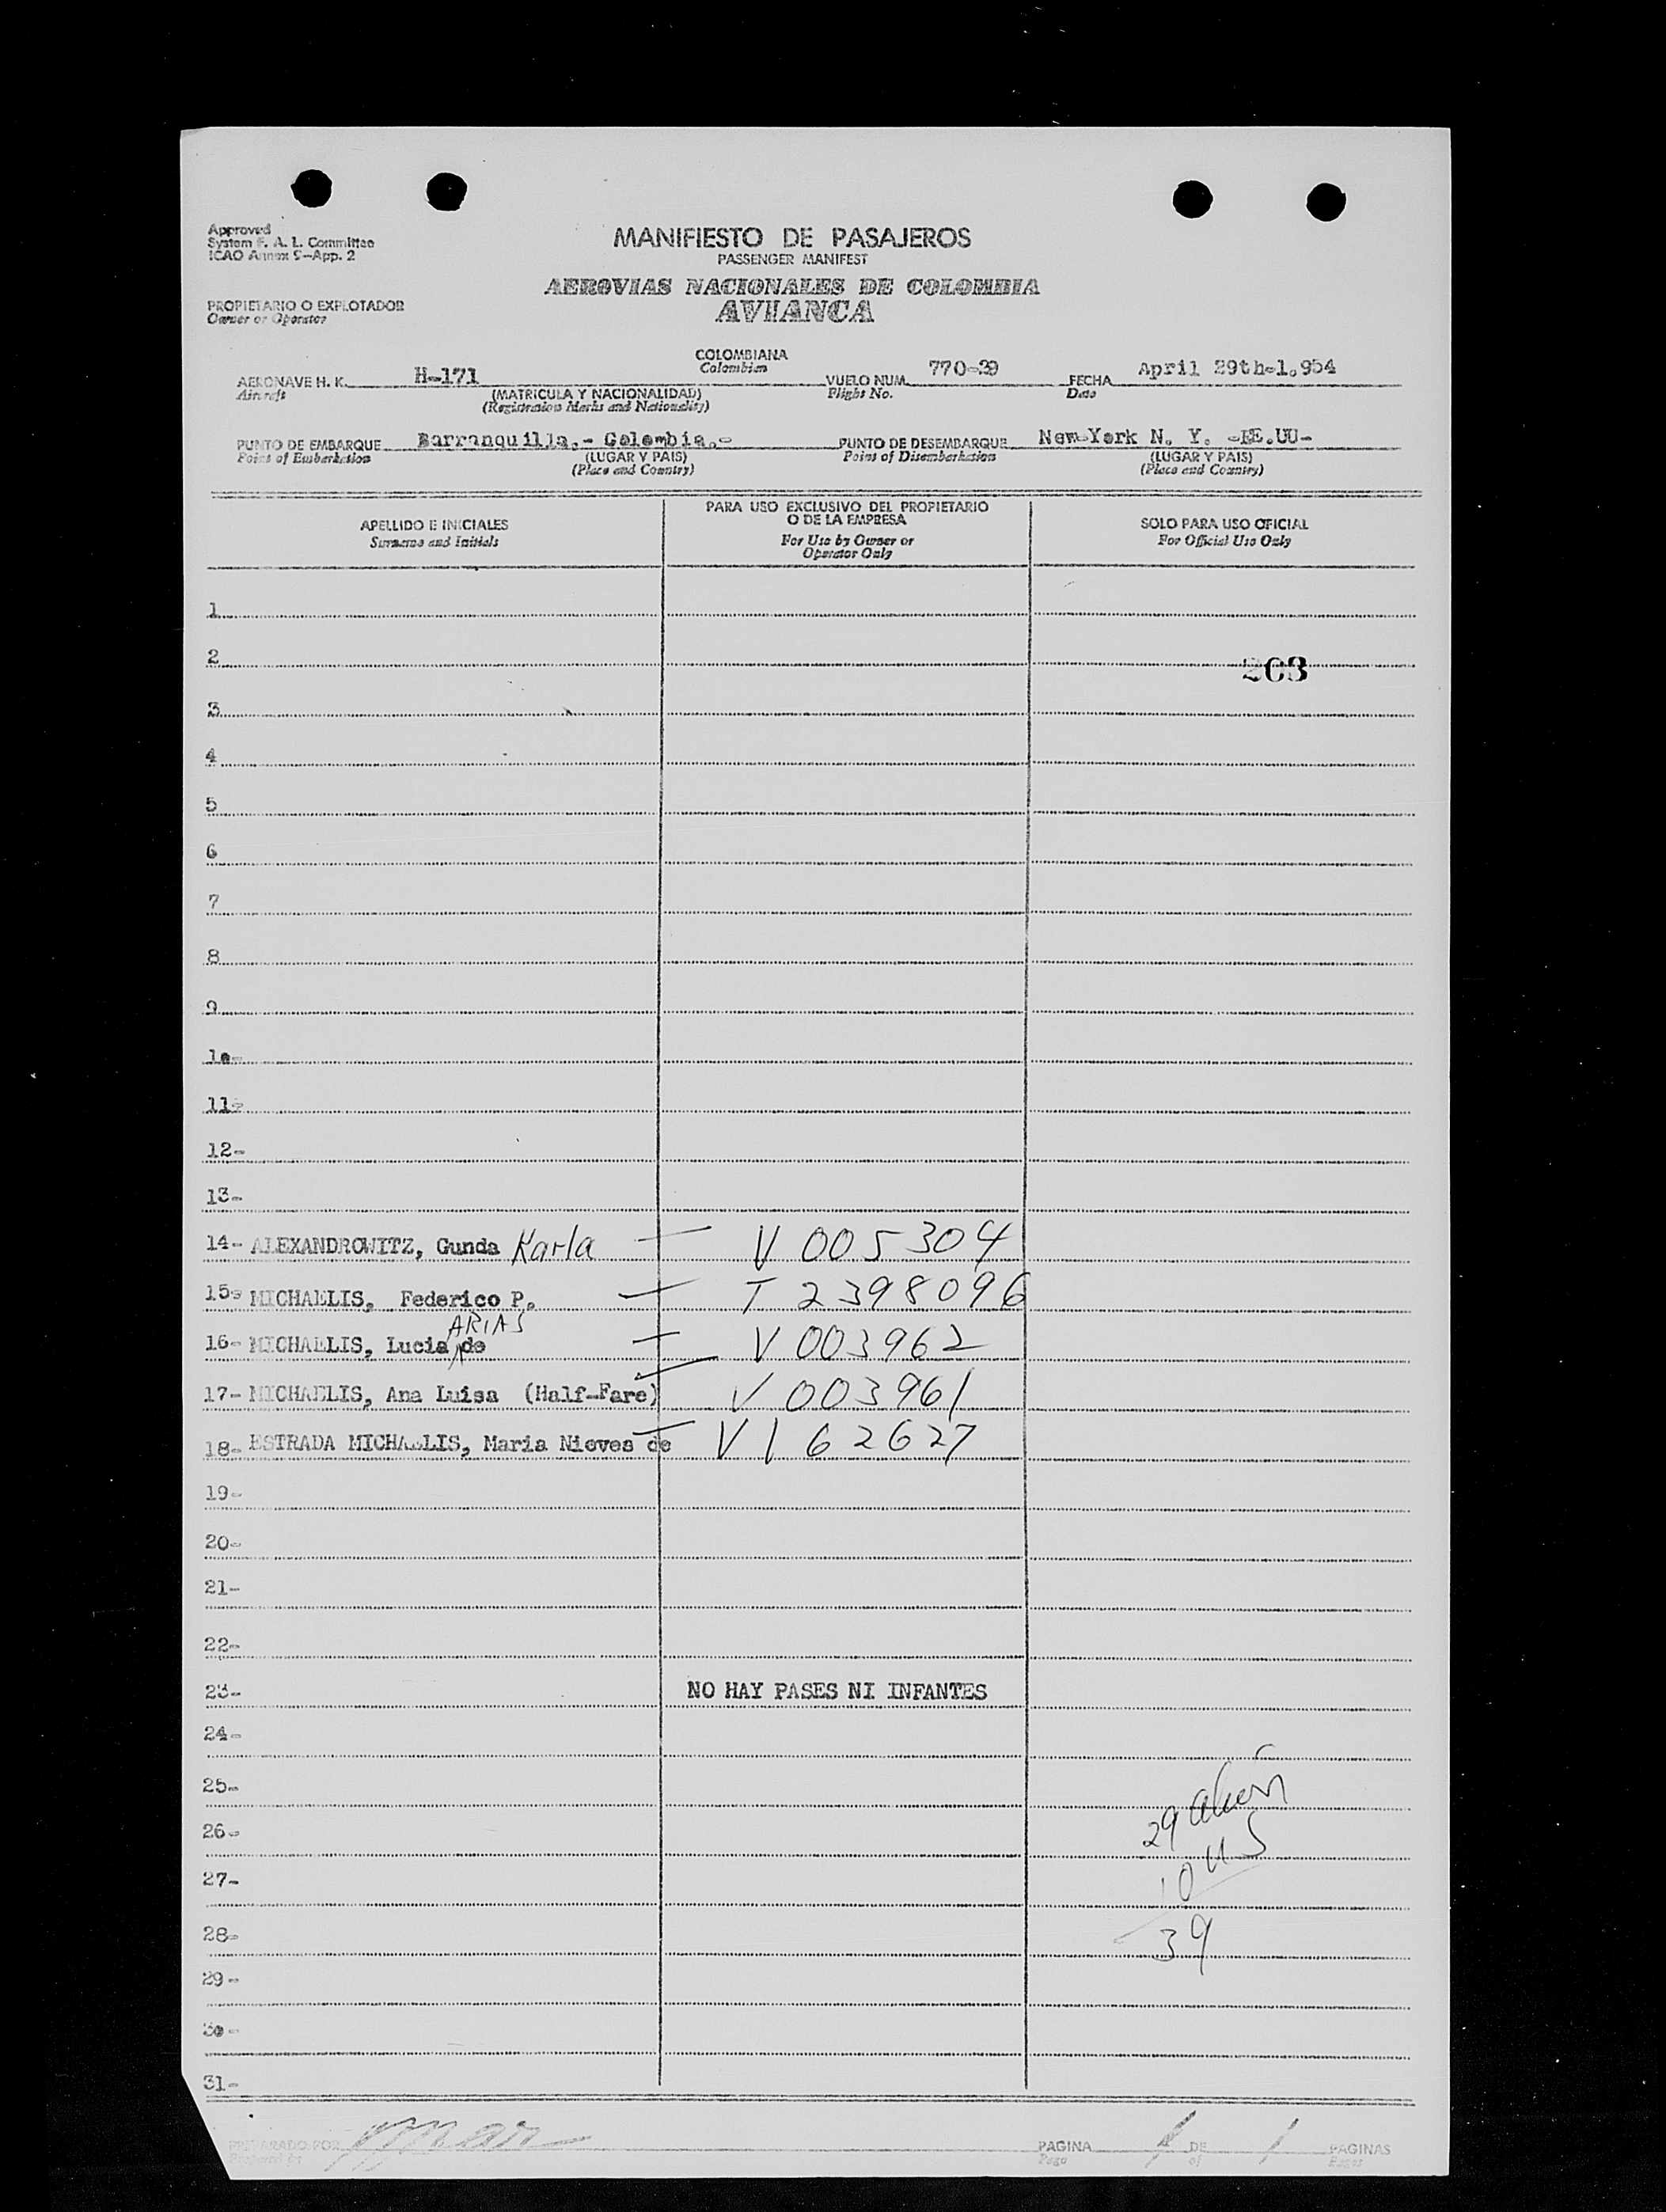 Approved
System F. A. L. Committee
ICAO Annex 9-App. 2
MANIFIESTO DE PASAJEROS
PASSENGER MANIFEST
AEROVIAS NACIONALES DE COLOMBIA
AVIANCA
PROPIETARIO O EXPLOTADOR
Owner or Operator
COLOMBIANA
Colombian
AERONAVE H. K. H-171 VUELO NUM. 770-29 FECHA April 29th-1,954
Aircraft (MATRICULA Y NACIONALIDAD) Flight No. Date
(Registration Marks and Nationality)
PUNTO DE EMBARQUE Barranquilla.- Colombia.- PUNTO DE DESEMBARQUE New-York N. Y. -EE.UU-
Point of Embarkation (LUGAR Y PAIS) Point of Disembarkation (LUGAR Y PAIS)
(Place and Country) (Place and Country)
APELLIDO E INICIALES
Surname and Initials
PARA USO EXCLUSIVO DEL PROPIETARIO
O DE LA EMPRESA
For Use by Owner or
Operator Only
SOLO PARA USO OFICIAL
For Official Use Only
1
2
203
3
4
5
6
7
8
9
10-
11-
12-
13-
14- ALEXANDROWITZ, Gunda Karla — V 005304
15- MICHAELIS, Federico P. — T 2398096
ARIAS
16- MICHAELIS, Lucia de — V 003962
17- MICHAELIS, Ana Luisa (Half-Fare) V 003961
18- ESTRADA MICHAELIS, Maria Nieves de V 162627
19-
20-
21-
22-
23- NO HAY PASES NI INFANTES
24-
25-
29 alien
26-
10 US
27-
28-
39
29-
30-
31-
PREPARADO POR
Prepared by
PAGINA 1 DE 1 PAGINAS
Page of Pages